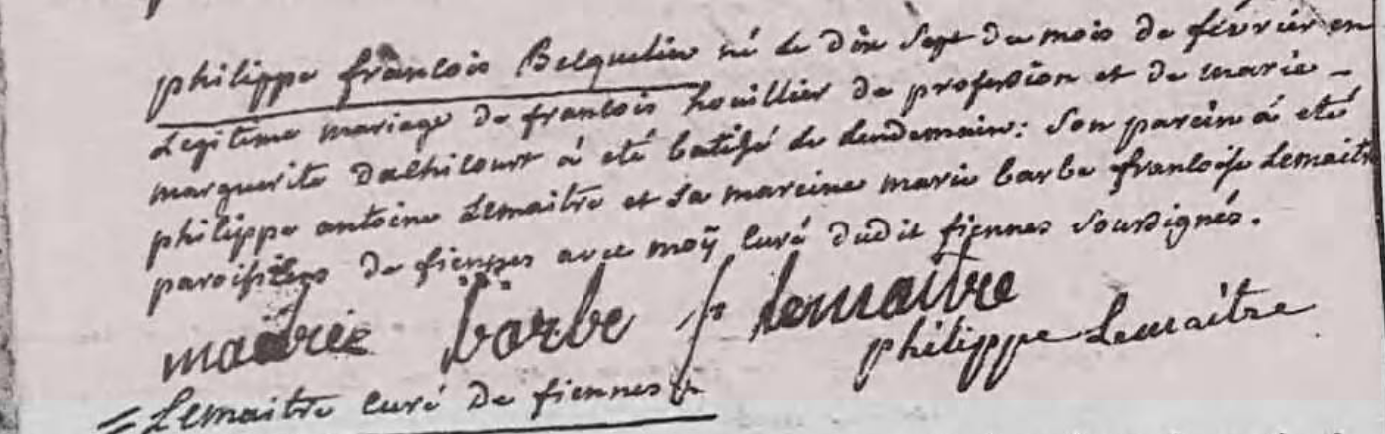 philippe francois Belquelin né le dix sept du mois de février en
Legitime mariage de francois houillier de profession et de marie -
marguerite Dalhicourt à eté batisé le lendemain: son parein à eté
philippe antoine Lemaitre et sa mareine marie barbe francoise Lemaitre
paroissiens de fiennes avec moÿ curé dudit fiennes soussignés.
marie barbe f lemaitre
philippe Lemaitre
= Lemaitre curé de fiennes